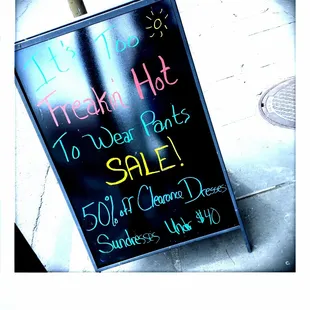 It's Too
Freakin' Hot
To Wear Pants
SALE!
50% off Clearance Dresses
Sundresses Under $40